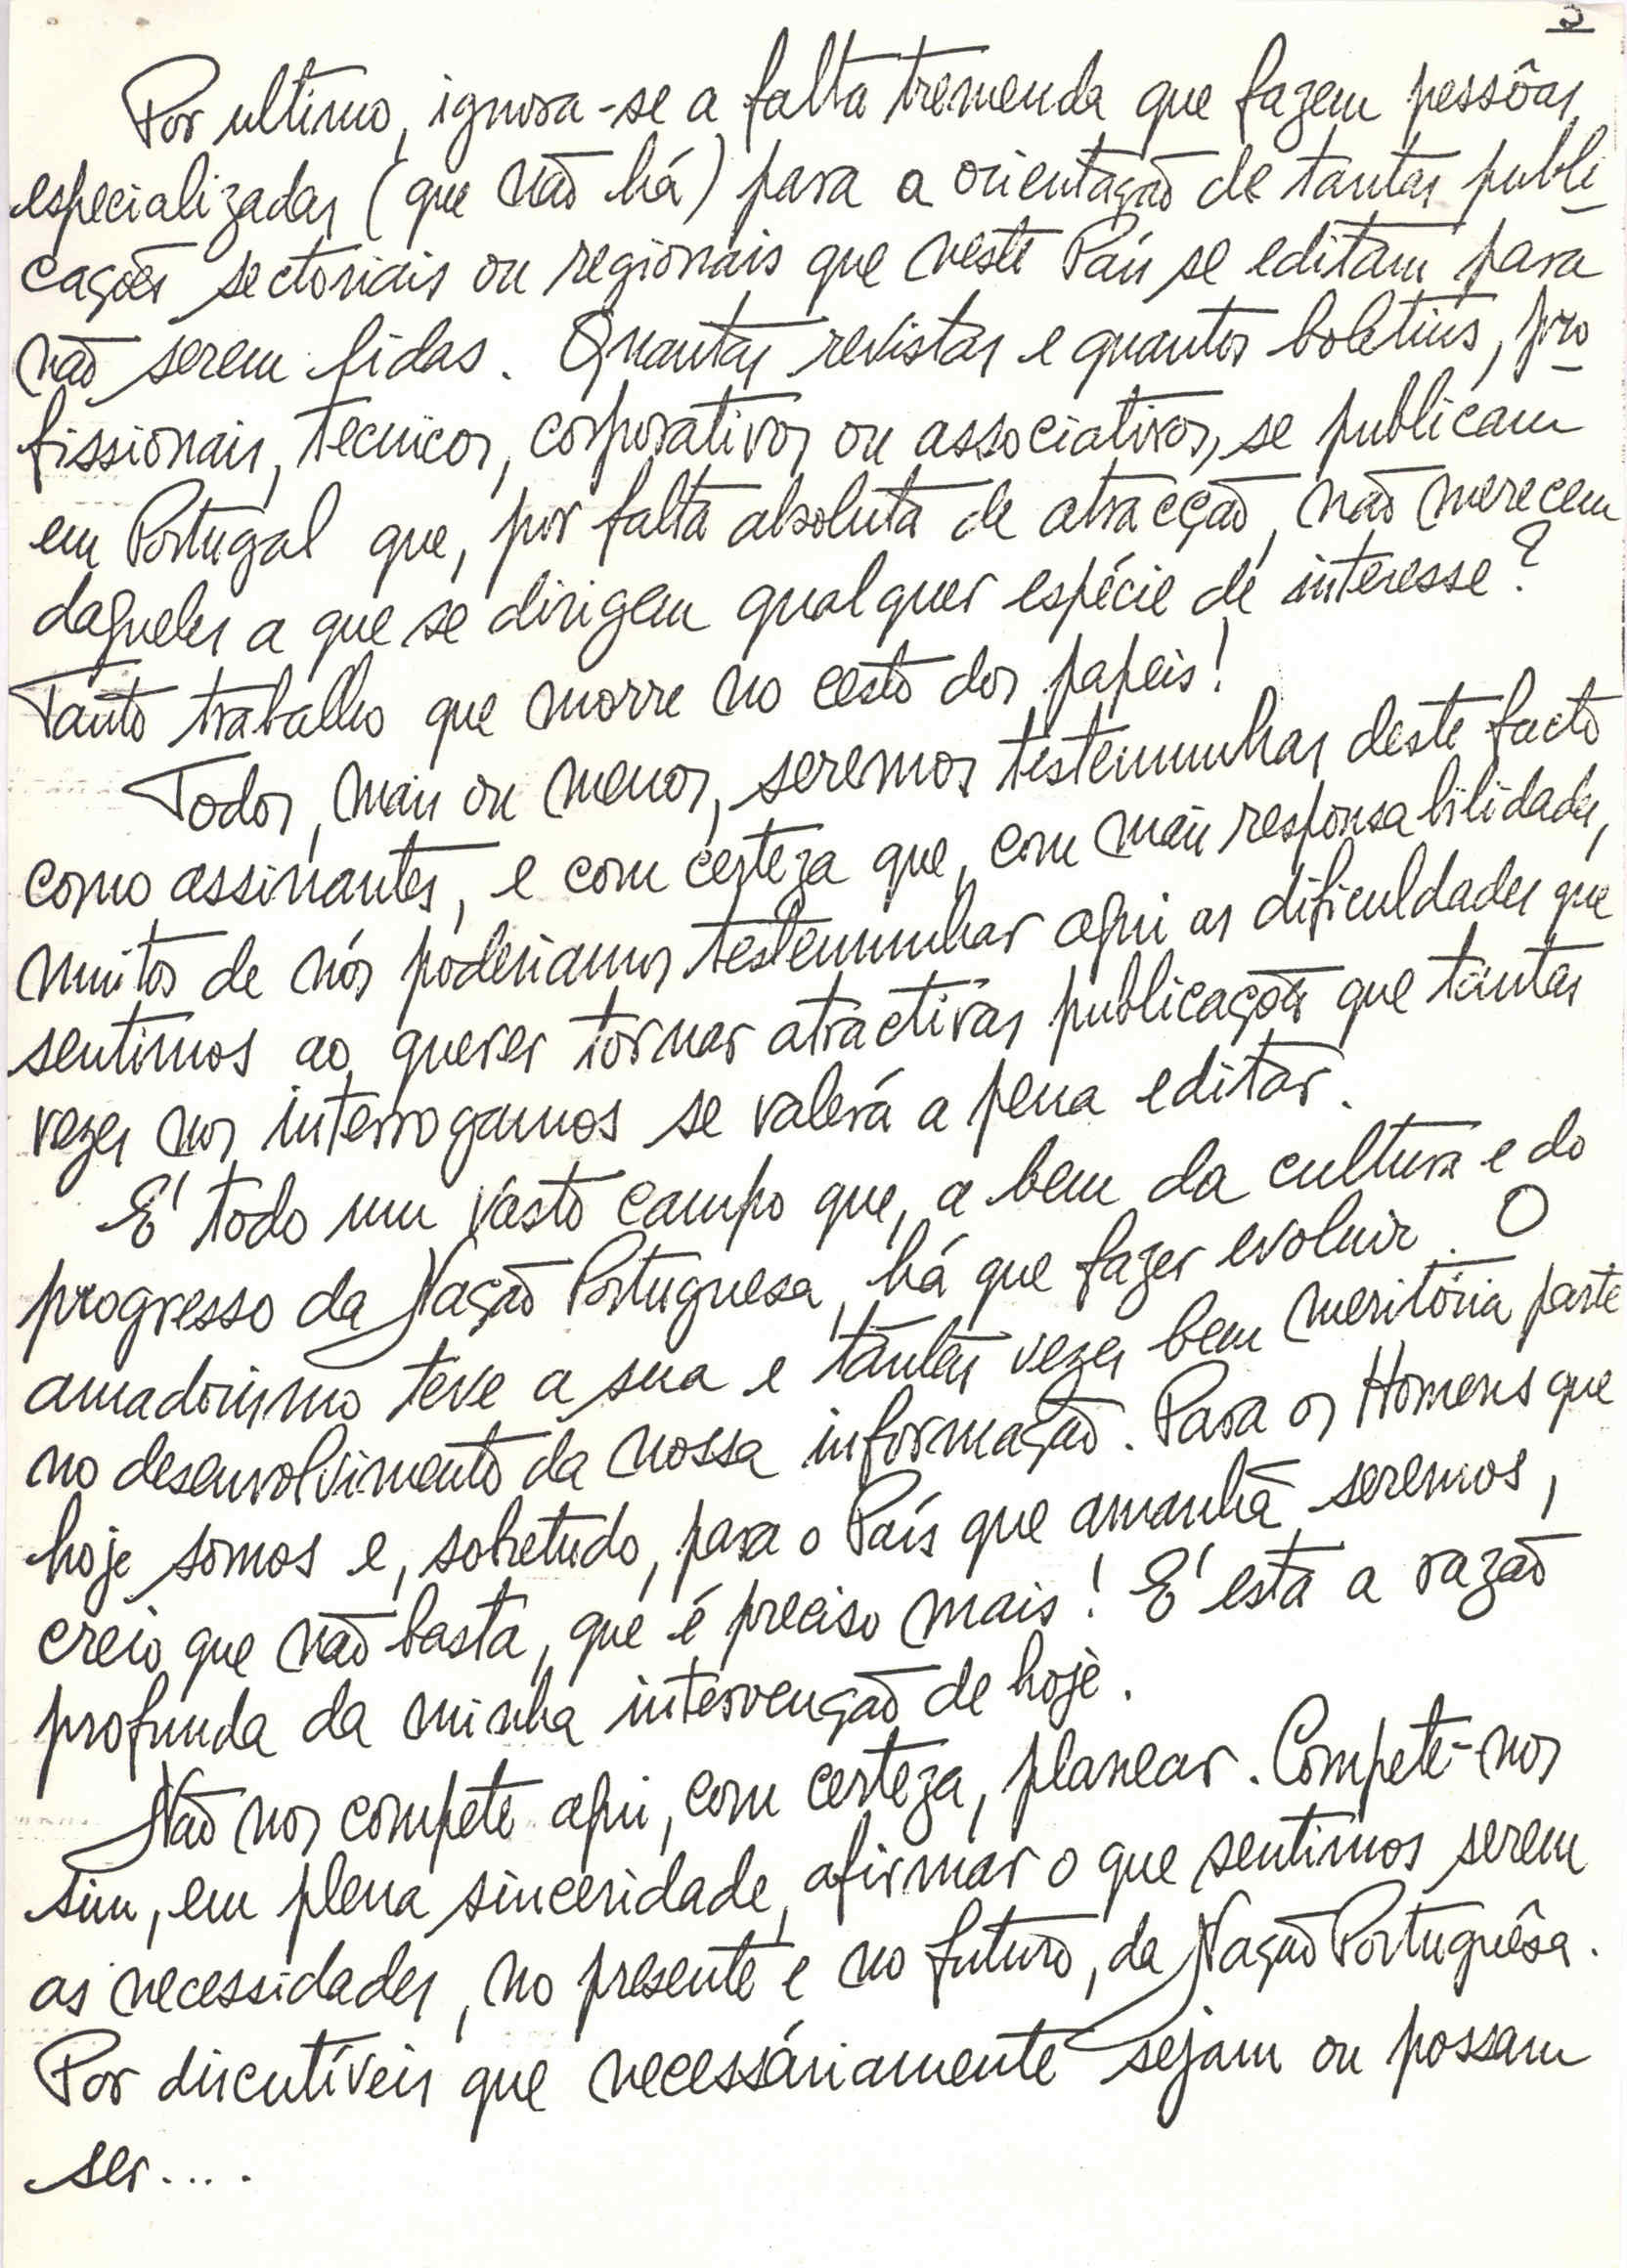 Por ultimo, ignora-se a falta tremenda que fazem pessôas
especializadas (que não há) para a orientação de tantas publi-
cações sectoriais ou regionais que neste País se editam para
não serem lidas. Quantas revistas e quantos boletins, pro-
fissionais, tecnicos, corporativos ou associativos, se publicam
em Portugal que, por falta absoluta de atracção, não merecem
daqueles a que se dirigem qualquer espécie de interesse?
Tanto trabalho que morre no cesto dos papeis!
Todos, mais ou menos, seremos testemunhas deste facto
como assinantes, e com certeza que, com mais responsabilidades,
muitos de nós poderiamos testemunhar aqui as dificuldades que
sentimos ao querer tornar atractivas publicações que tantas
vezes nos interrogamos se valerá a pena editar.
E' todo um vasto campo que, a bem da cultura e do
progresso da Nação Portuguesa, há que fazer evoluir. O
amadorismo teve a sua e tantas vezes bem meritória parte
no desenvolvimento da nossa informação. Para os Homens que
hoje somos e, sobretudo, para o País que amanhã seremos,
creio que não basta, que é preciso mais! E' esta a razão
profunda da minha intervenção de hoje.
Não nos compete aqui, com certeza, planear. Compete-nos
sim, em plena sinceridade, afirmar o que sentimos serem
as necessidades, no presente e no futuro, da Nação Portuguêsa.
Por discutíveis que necessáriamente sejam ou possam
ser....